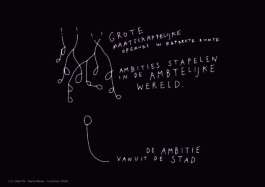 GROTE
MAATSCHAPPELIJKE
OPGAVES IN BEPERKTE RUIMTE
AMBITIES STAPELEN
IN DE AMBTELIJKE
WERELD.
DE AMBITIE
VANUIT DE STAD